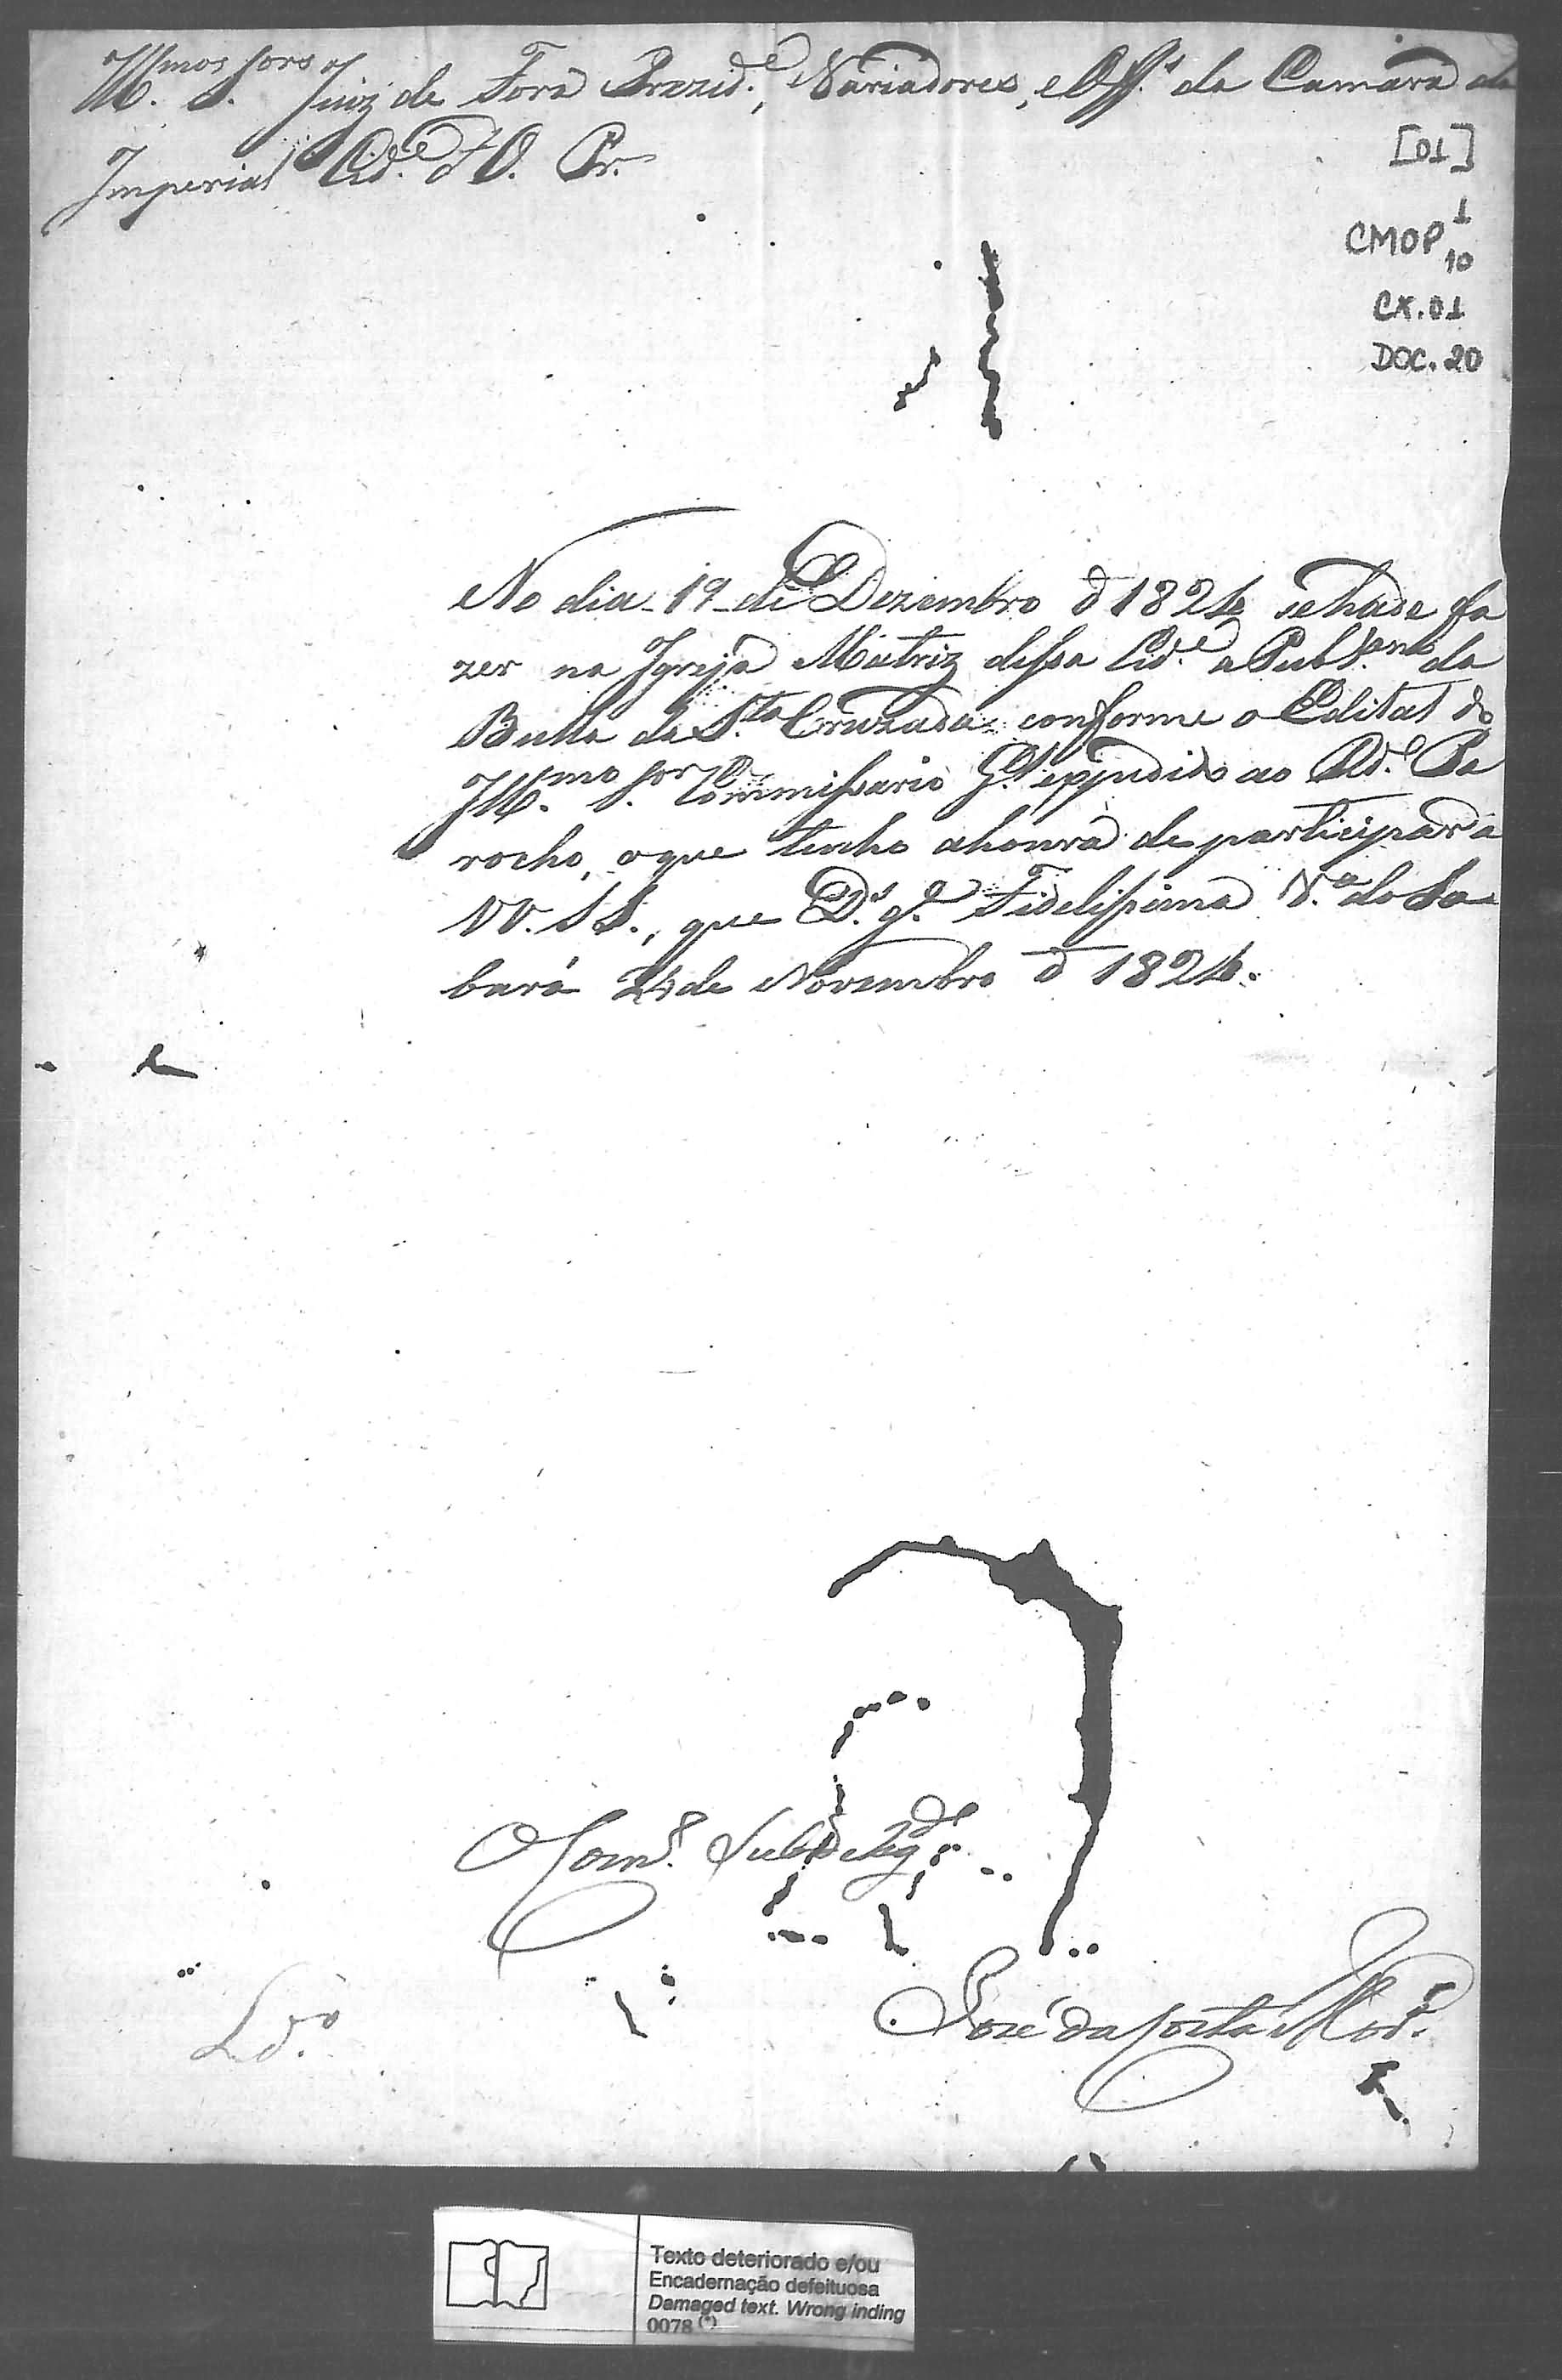 Ill.mos Snres Juiz de Fora Prezid.e, Variadores, e Off.s da Camara da
Imperial Cid.e d' O. Pr.
[01]
CMOP 1
10
CX.01
DOC.20
No dia 19 de Dezembro d 1824 se hade fa
zer na Igreja Matriz dessa Cid.e a Publ da
Bulla da S.ta Cruzada conforme o Edital do
Ill.mo Snr Commissario G.al expedido ao Rd.o Pa
rocho, o que tenho ahonra de participar a
VV. SS., que D.s g.e Fidelissima V.a do Sa
bará 24 de Novembro d 1824.
O Com.o Subdeleg.do
José da Costa Mor.
L.do
Texto deteriorado e/ou
Encadernação defeituosa
Damaged text. Wrong inding
0078 (*)